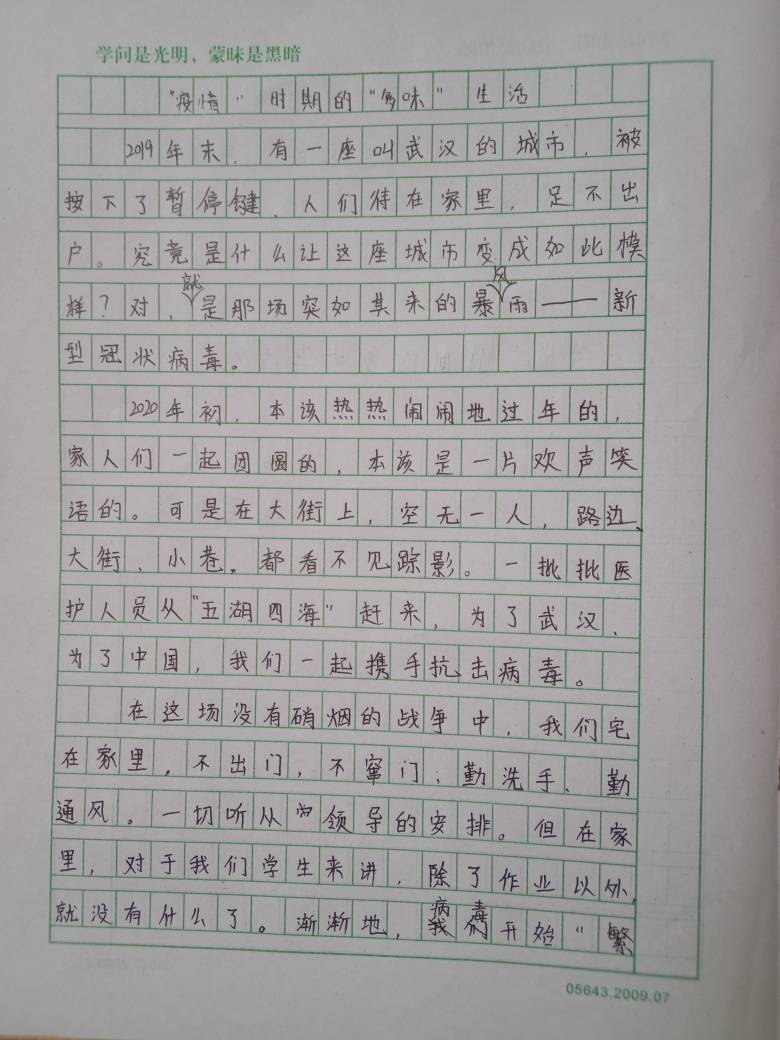 学问是光明，蒙昧是黑暗
"疫情"时期的"多味"生活
2019年末，有一座叫武汉的城市，被
按下了暂停键，人们待在家里，足不出
户。究竟是什么让这座城市变成如此模
样？对，就是那场突如其来的暴风雨——新
型冠状病毒。
2020年初，本该热热闹闹地过年的，
家人们一起团圆的，本该是一片欢声笑
语的。可是在大街上，空无一人，路边、
大街、小巷，都看不见踪影。一批批医
护人员从"五湖四海"赶来，为了武汉、
为了中国，我们一起携手抗击病毒。
在这场没有硝烟的战争中，我们宅
在家里，不出门，不窜门；勤洗手、勤
通风。一切听从领导的安排。但在家
里，对于我们学生来讲，除了作业以外，
就没有什么了。渐渐地，病毒开始"繁
05643.2009.07